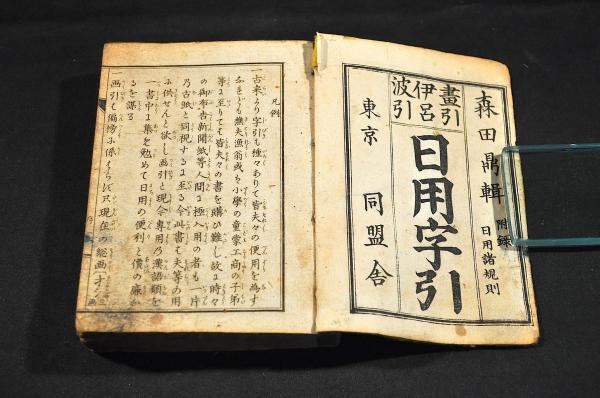 森田鼎輯
附録
日用諸規則
畫引
伊呂
波引
日用字引
東京
同盟舎
凡例
一古来より字引も種々ありて皆夫々の便用を為す
なれども樵夫漁翁或も小學の童蒙工商の子弟
等に至りても皆夫々の書を購ひ難し故に時々
の御布告新聞紙等人間に極入用の者も一片
乃古紙と同視するに至る今此書も夫等の用
に供せんと欲し画引と現今専用乃漢語類を
一書中に集を勉めて日用の便利と價の廉か
るを謀る
一画引も偏傍に係はらず只現在の総画